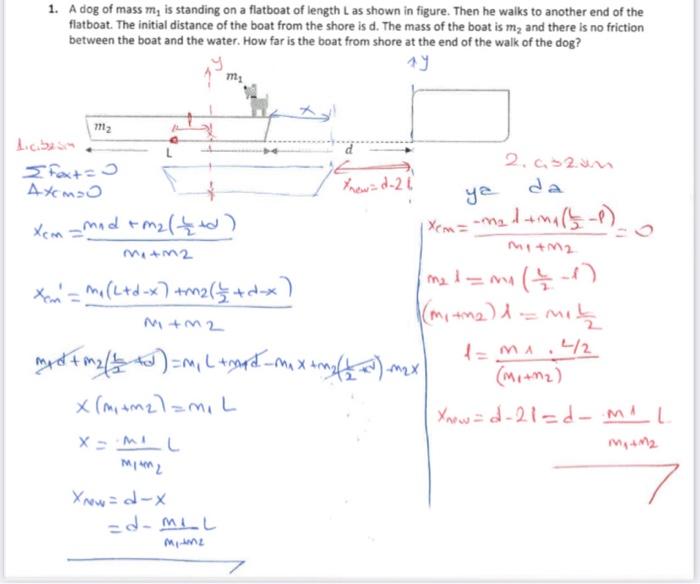 1. A dog of mass m₁ is standing on a flatboat of length L as shown in figure. Then he walks to another end of the
flatboat. The initial distance of the boat from the shore is d. The mass of the boat is m₂ and there is no friction
between the boat and the water. How far is the boat from shore at the end of the walk of the dog?
y
y
m₁
x
m₂
l
L
d
1. çözüm
ΣFext=0
Δxcm=0
xnew=d-2l
xcm = m₁d + m₂(L/2+d) / m₁+m₂
xcm' = m₁(L+d-x)+m₂(L/2+d-x) / m₁+m₂
m₁d+m₂(L/2+d)=m₁L+m₁d-m₁x+m₂(L/2+d)-m₂x
x(m₁+m₂)=m₁L
x = m₁/m₁+m₂ L
xnew=d-x
=d- m₁L/m₁+m₂
2. çözüm
ya da
xcm= -m₂l+m₁(L/2-l) / m₁+m₂ =0
m₂l=m₁(L/2-l)
(m₁+m₂)l=m₁L/2
l= m₁.L/2 / (m₁+m₂)
xnew=d-2l=d- m₁L / m₁+m₂